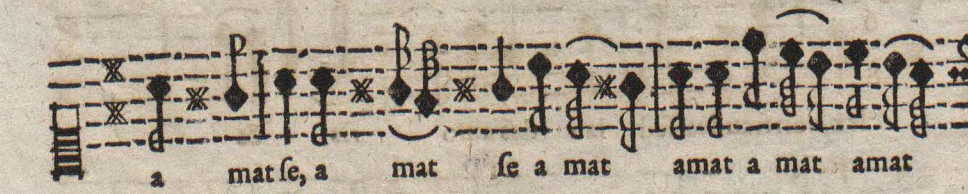 a mat ſe, a mat ſe a mat amat a mat amat